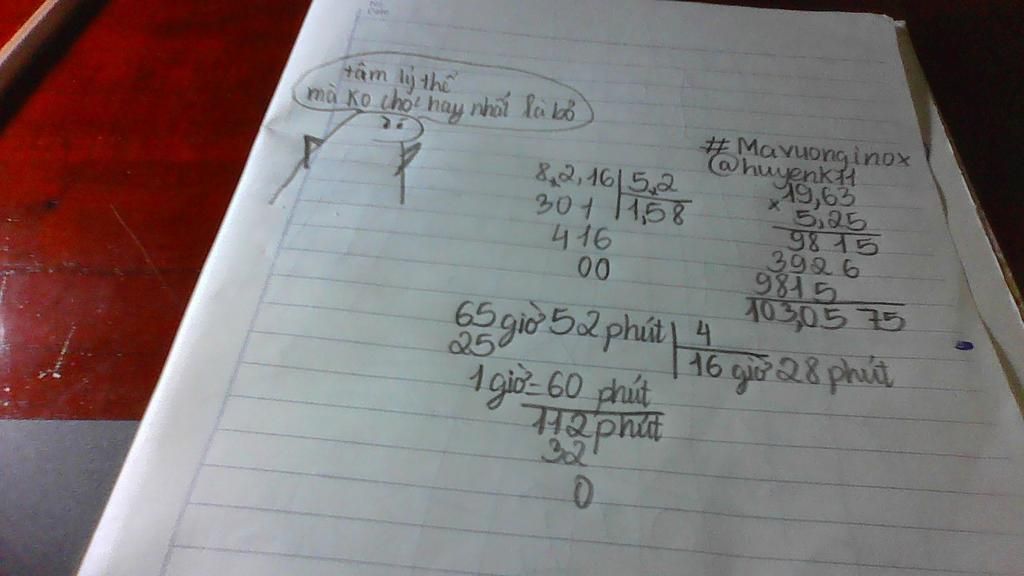 No.
Date
tâm lý thế
mà ko chọc hay nhất là bỏ
#Mavuonginox
@huyenk11
8,2,16 5,2
301 1,58
416
00
19,63
× 5,25
9815
3926
9815
103,0575
65 giờ 52 phút 4
25 16 giờ 28 phút
1 giờ = 60 phút
112 phút
32
0